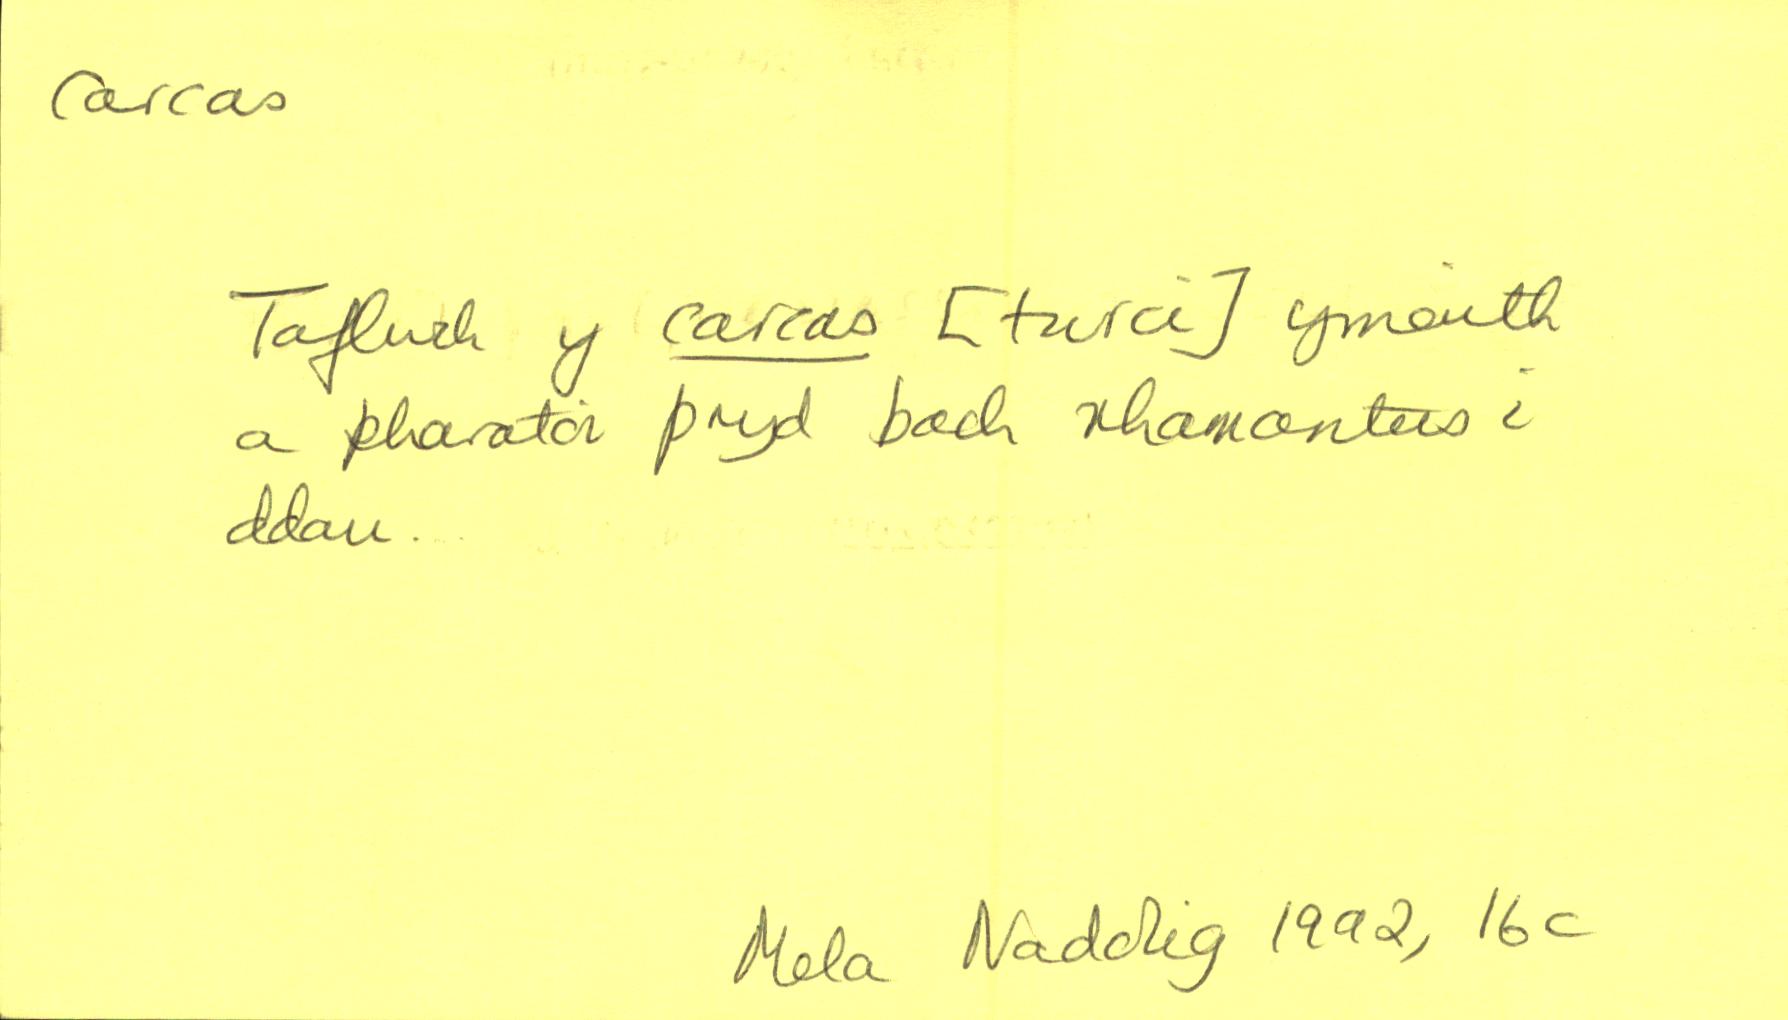 carcas
Taflwch y carcas [twrci] ymaith
a pharatoi pryd bach rhamantus i
ddau...
Mela Nadolig 1992, 16c